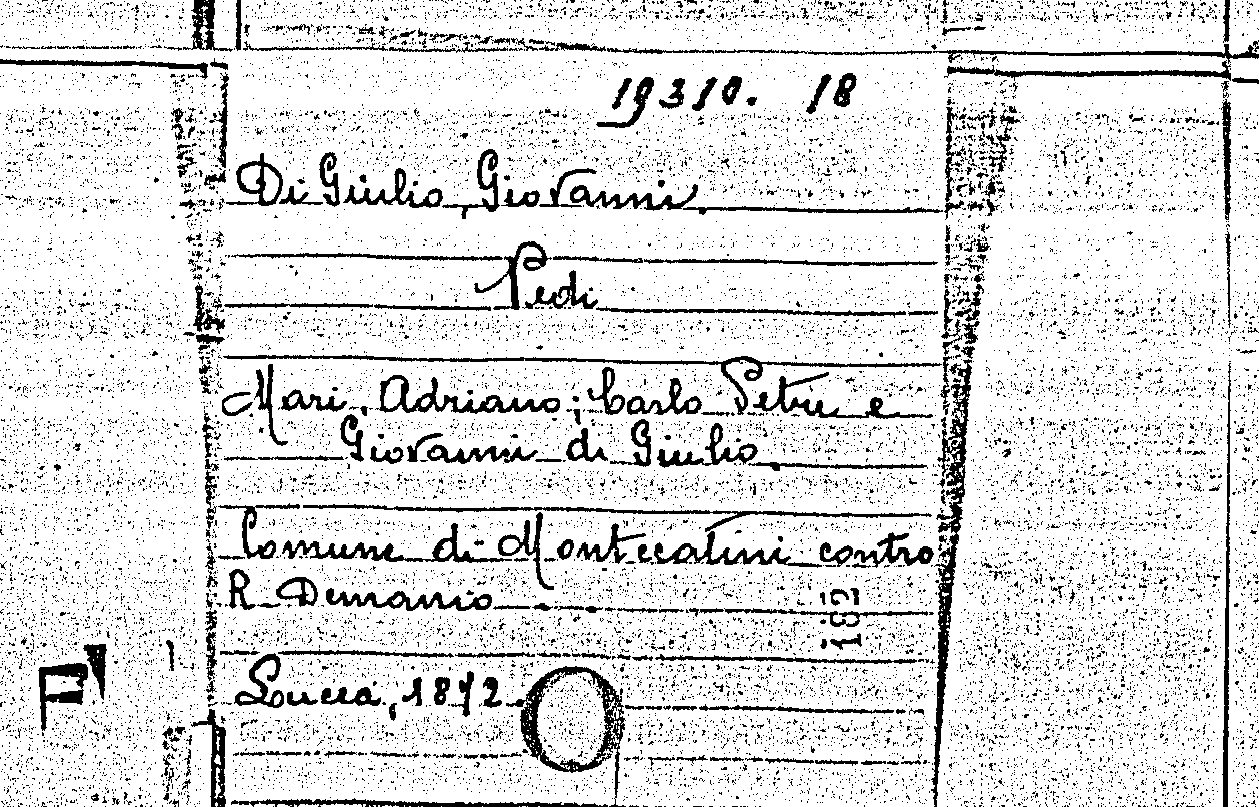 19310. 18
Di Giulio, Giovanni.
Vedi
Mari, Adriano; Carlo Petri e
Giovanni di Giulio.
Comune di Montecatini contro
R. Demanio
182
Lucca, 1872.